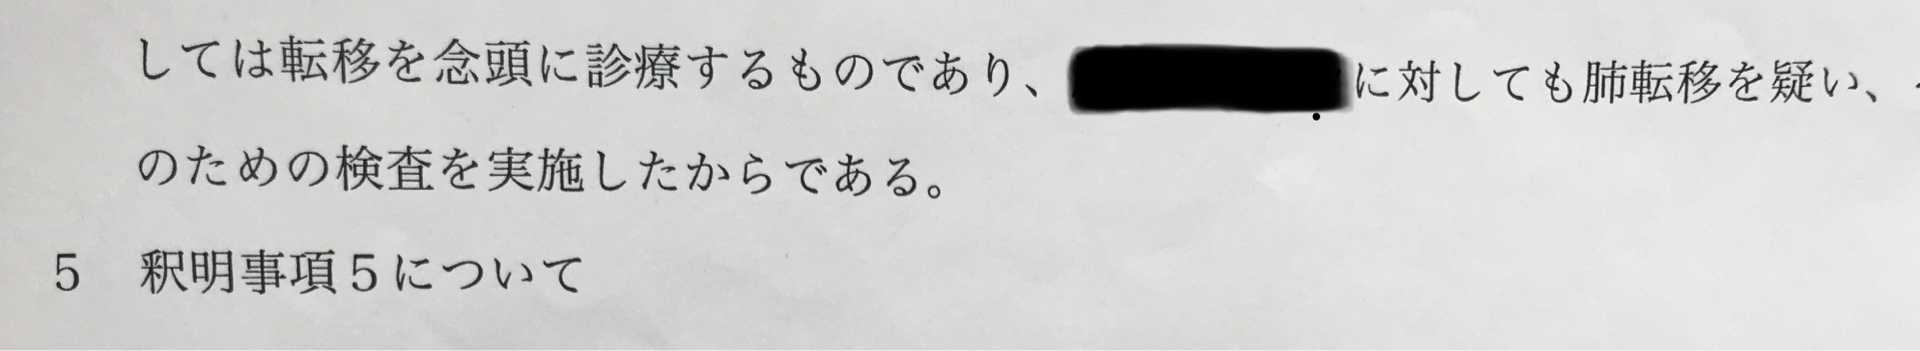 しては転移を念頭に診療するものであり、に対しても肺転移を疑い、
のための検査を実施したからである。
5 釈明事項5について